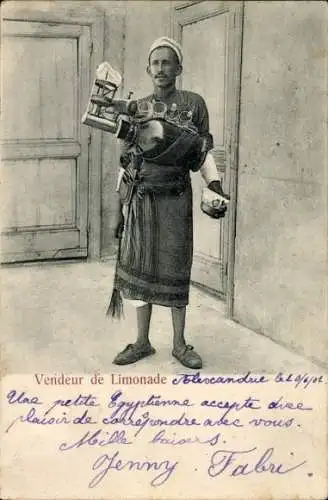 Vendeur de Limonade Alexandrie le 2/6/02
Une petite Egyptienne accepte avec
plaisir de correspondre avec vous.
Mille baisers.
Jenny Fabri